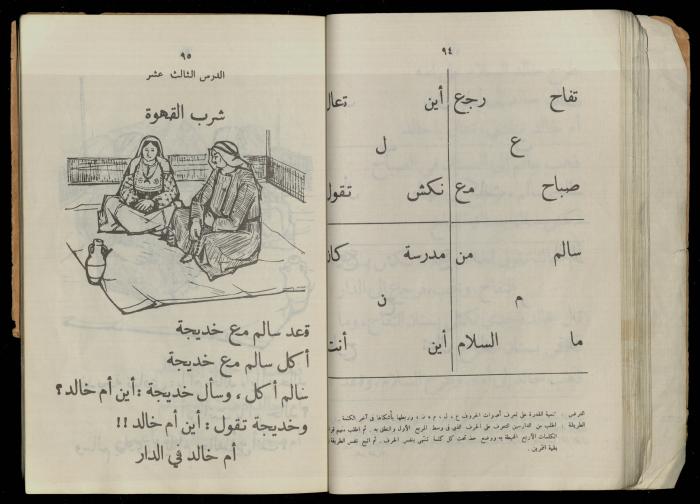 ٩٤
تفاح رجع أين
ع ل
صباح مع نكش تقول
سالم من مدرسة
م ن
ما السلام أين أنت
الغرض : تنمية القدرة على تعرف أصوات الحروف ع ، ل ، م ، ن ، وربطها بأشكالها في آخر الكلمة .
الطريقة : اطلب من الدارسين التعرف على الحرف الذي في وسط المربع الأول والنطق به . ثم اطلب منهم
الكلمات الأربع المحيطة به ووضع خط تحت كل كلمة تنتهي بنفس الحرف . ثم اتبع نفس الطريقة
بقية التمرين .
٩٥
الدرس الثالث عشر
شرب القهوة
قعد سالم مع خديجة
أكل سالم مع خديجة
سالم أكل ، وسأل خديجة : أين أم خالد ؟
وخديجة تقول : أين أم خالد !!
أم خالد في الدار